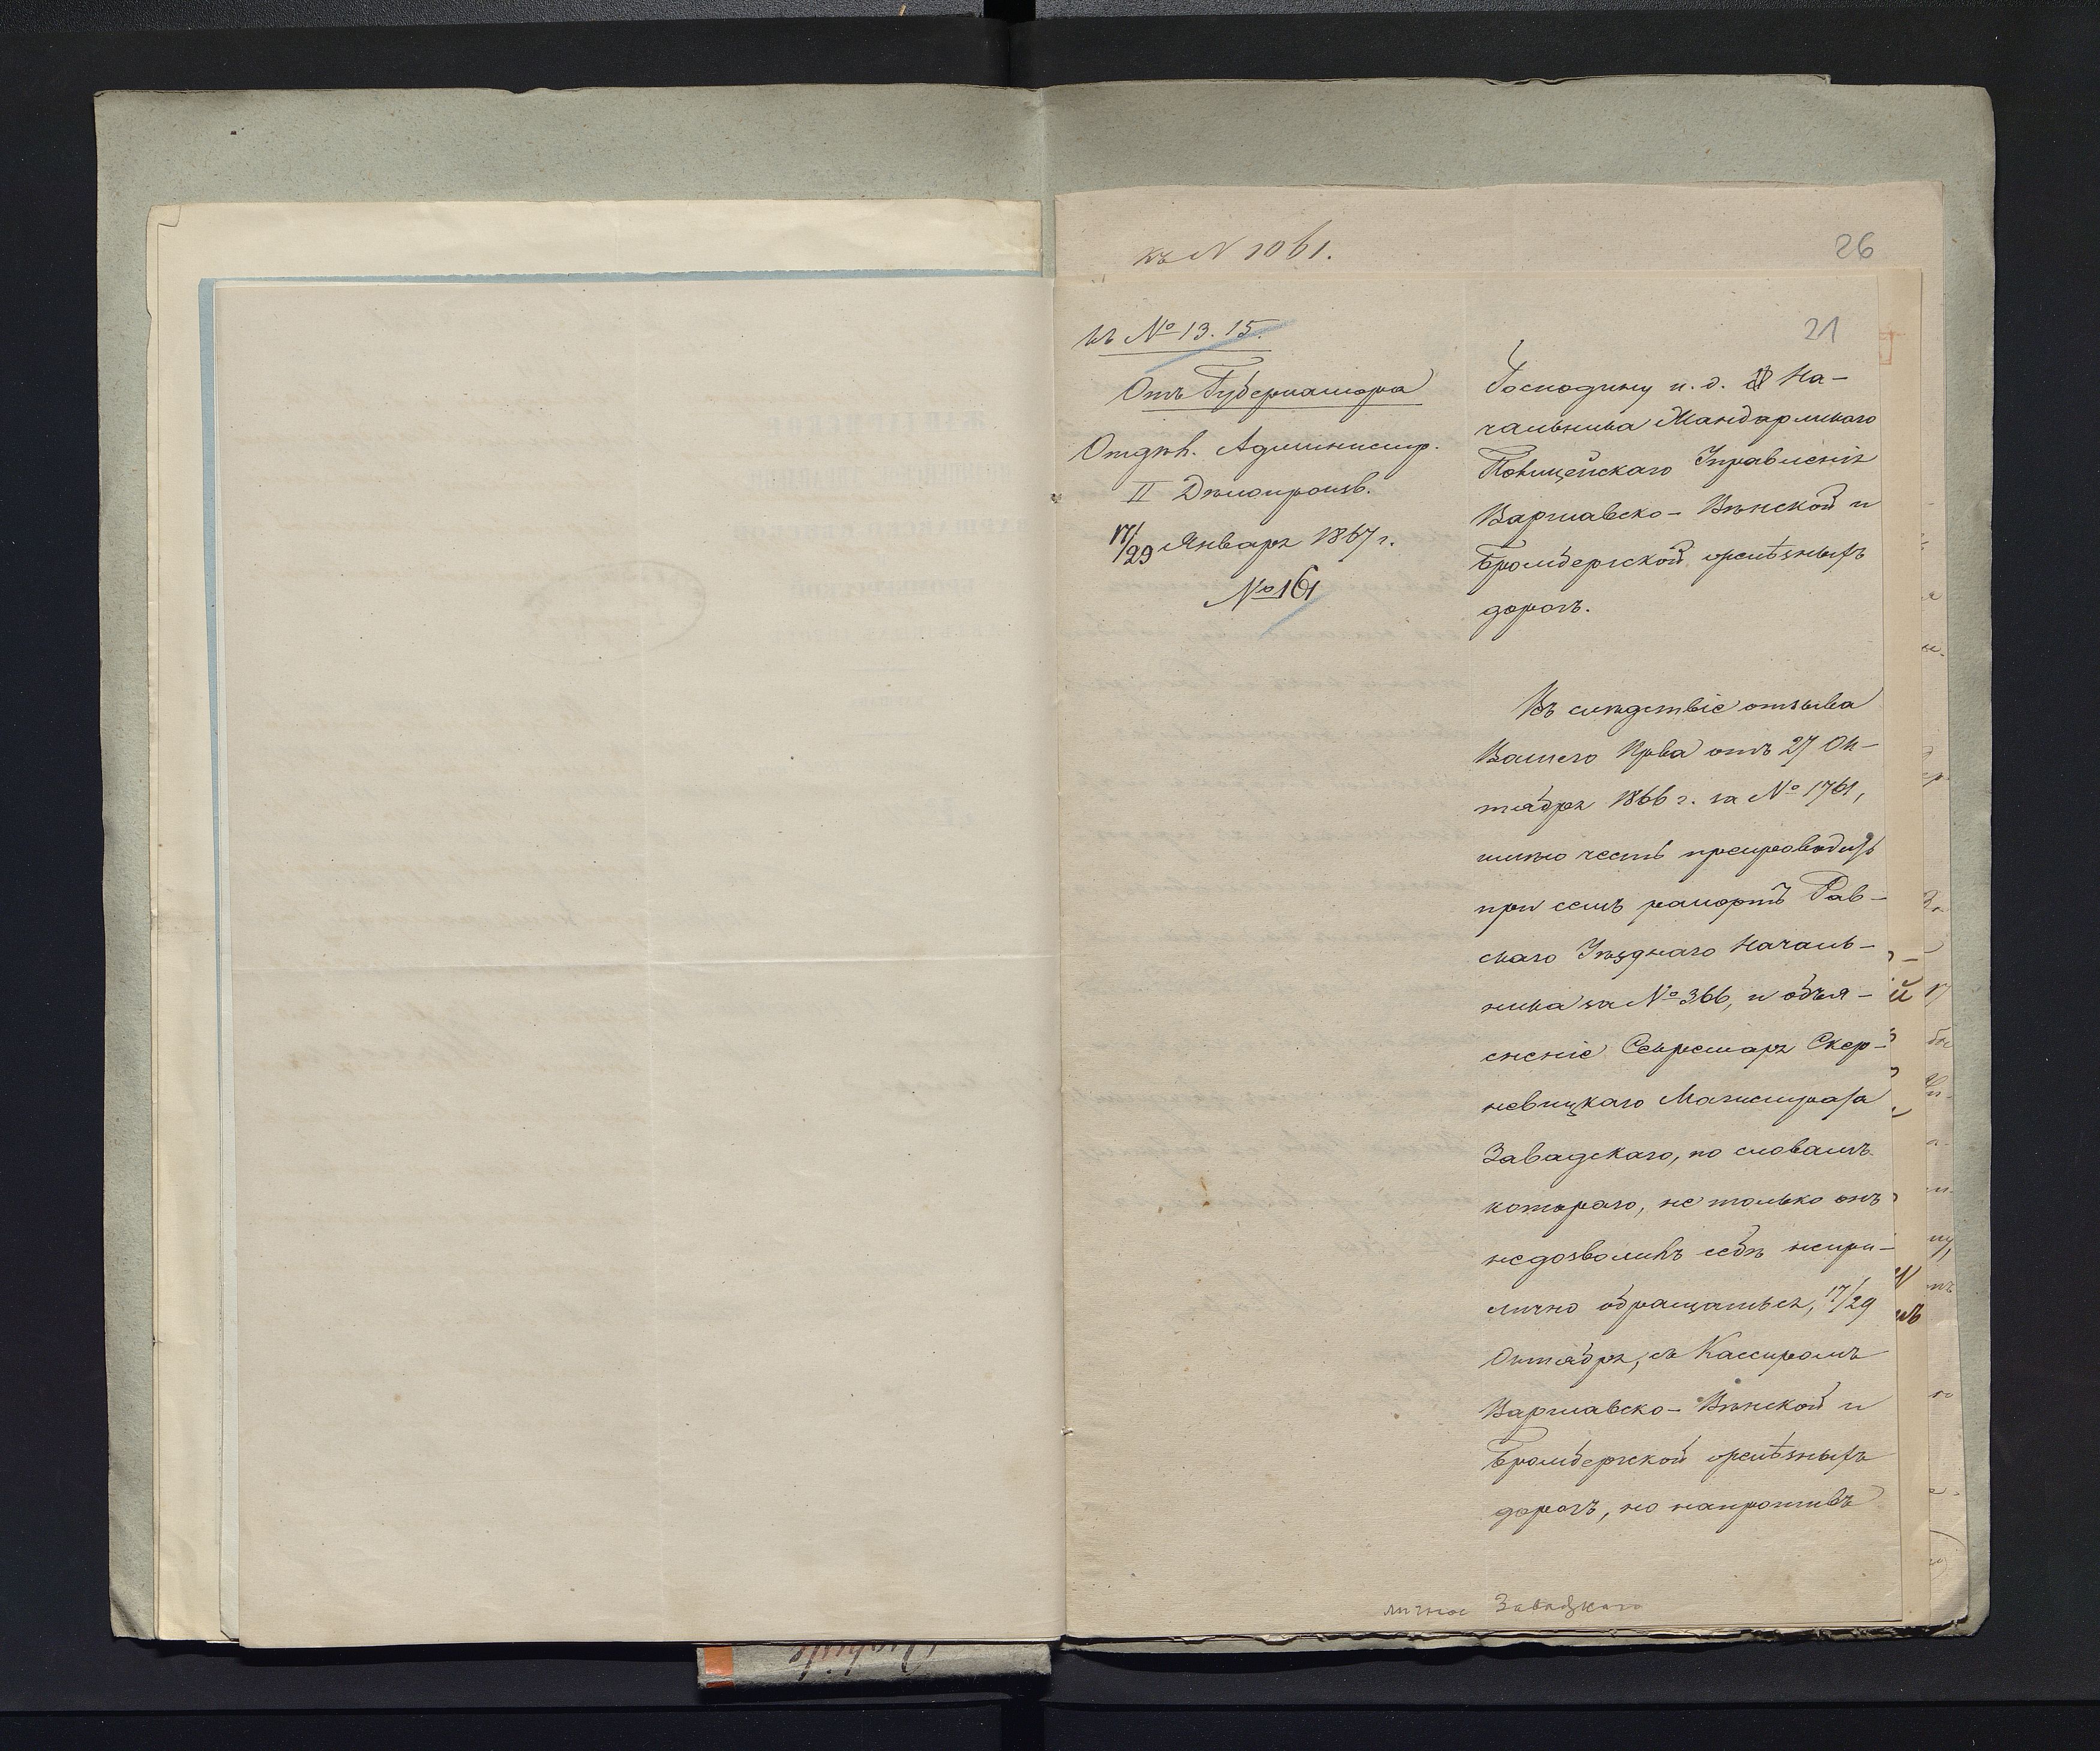 къ N 1061.
26
къ № 13.15.
21
Отъ Губернатора
Отдѣл. Администр.
II Дѣлопроизв.
17/29 Января 1867 г.
№ 161
Господину и. д. На-
чальника Жандармскаго
Полицейскаго Управленія
Варшавско-Вѣнской и
Бромбергской желѣзныхъ
дорогъ.
Въ слѣдствіе отзыва
Вашего от 27 Ок-
тября 1866 г. за № 1761,
имѣю честь препроводить
при семъ рапортъ Рав-
скаго Уѣзднаго Началь-
ника за № 366, и объя-
сненіе Секретаря Скер-
невицкаго Магистрата
Завадскаго, по словамъ
котораго, не только онъ
недозволилъ себѣ непри-
лично обращаться, 17/29
Октября, съ Кассиромъ
Варшавско-Вѣнской и
Бромбергской желѣзныхъ
дорогъ, но напротивъ
личное Завадскаго